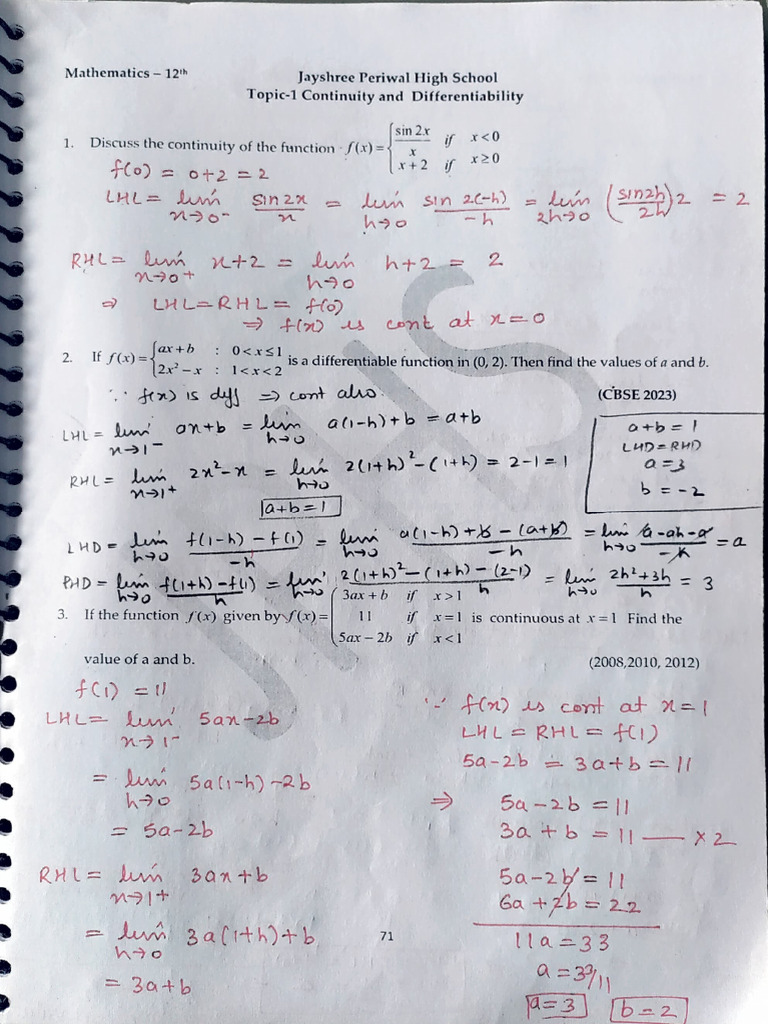 Mathematics – 12th
Jayshree Periwal High School
Topic-1 Continuity and Differentiability
1. Discuss the continuity of the function f(x) = { sin 2x / x if x < 0
x + 2 if x ≥ 0
f(0) = 0+2 = 2
LHL = lim x→0- sin2x/x = lim h→0 sin 2(-h)/-h = lim 2h→0 (sin2h/2h)2 = 2
RHL = lim x→0+ x+2 = lim h→0 h+2 = 2
⇒ LHL = RHL = f(0)
⇒ f(x) is cont at x=0
2. If f(x) = { ax + b : 0 < x ≤ 1
2x² – x : 1 < x < 2 is a differentiable function in (0, 2). Then find the values of a and b.
(CBSE 2023)
∵ f(x) is diff ⇒ cont also.
LHL = lim x→1- ax+b = lim h→0 a(1-h)+b = a+b
RHL = lim x→1+ 2x²-x = lim h→0 2(1+h)²-(1+h) = 2-1 = 1
a+b=1
a+b = 1
LHD = RHD
a = 3
b = -2
LHD = lim h→0 f(1-h) - f(1)/-h = lim h→0 a(1-h)+b - (a+b)/-h = lim h→0 a-ah-a/-h = a
RHD = lim h→0 f(1+h)-f(1)/h = lim h→0 2(1+h)²-(1+h)-(2-1)/h = lim h→0 2h²+3h/h = 3
3. If the function f(x) given by f(x) = { 3ax + b if x > 1
11 if x = 1 is continuous at x = 1 Find the
5ax – 2b if x < 1
value of a and b.
(2008,2010, 2012)
f(1) = 11
LHL = lim x→1- 5ax-2b
= lim h→0 5a(1-h)-2b
= 5a-2b
RHL = lim x→1+ 3ax+b
= lim h→0 3a(1+h)+b
= 3a+b
∵ f(x) is cont at x=1
LHL = RHL = f(1)
5a-2b = 3a+b = 11
⇒ 5a-2b = 11
3a+b = 11 — ×2
5a-2b = 11
6a+2b = 22
11a = 33
a = 33/11
a=3 b=2
71
JPHS